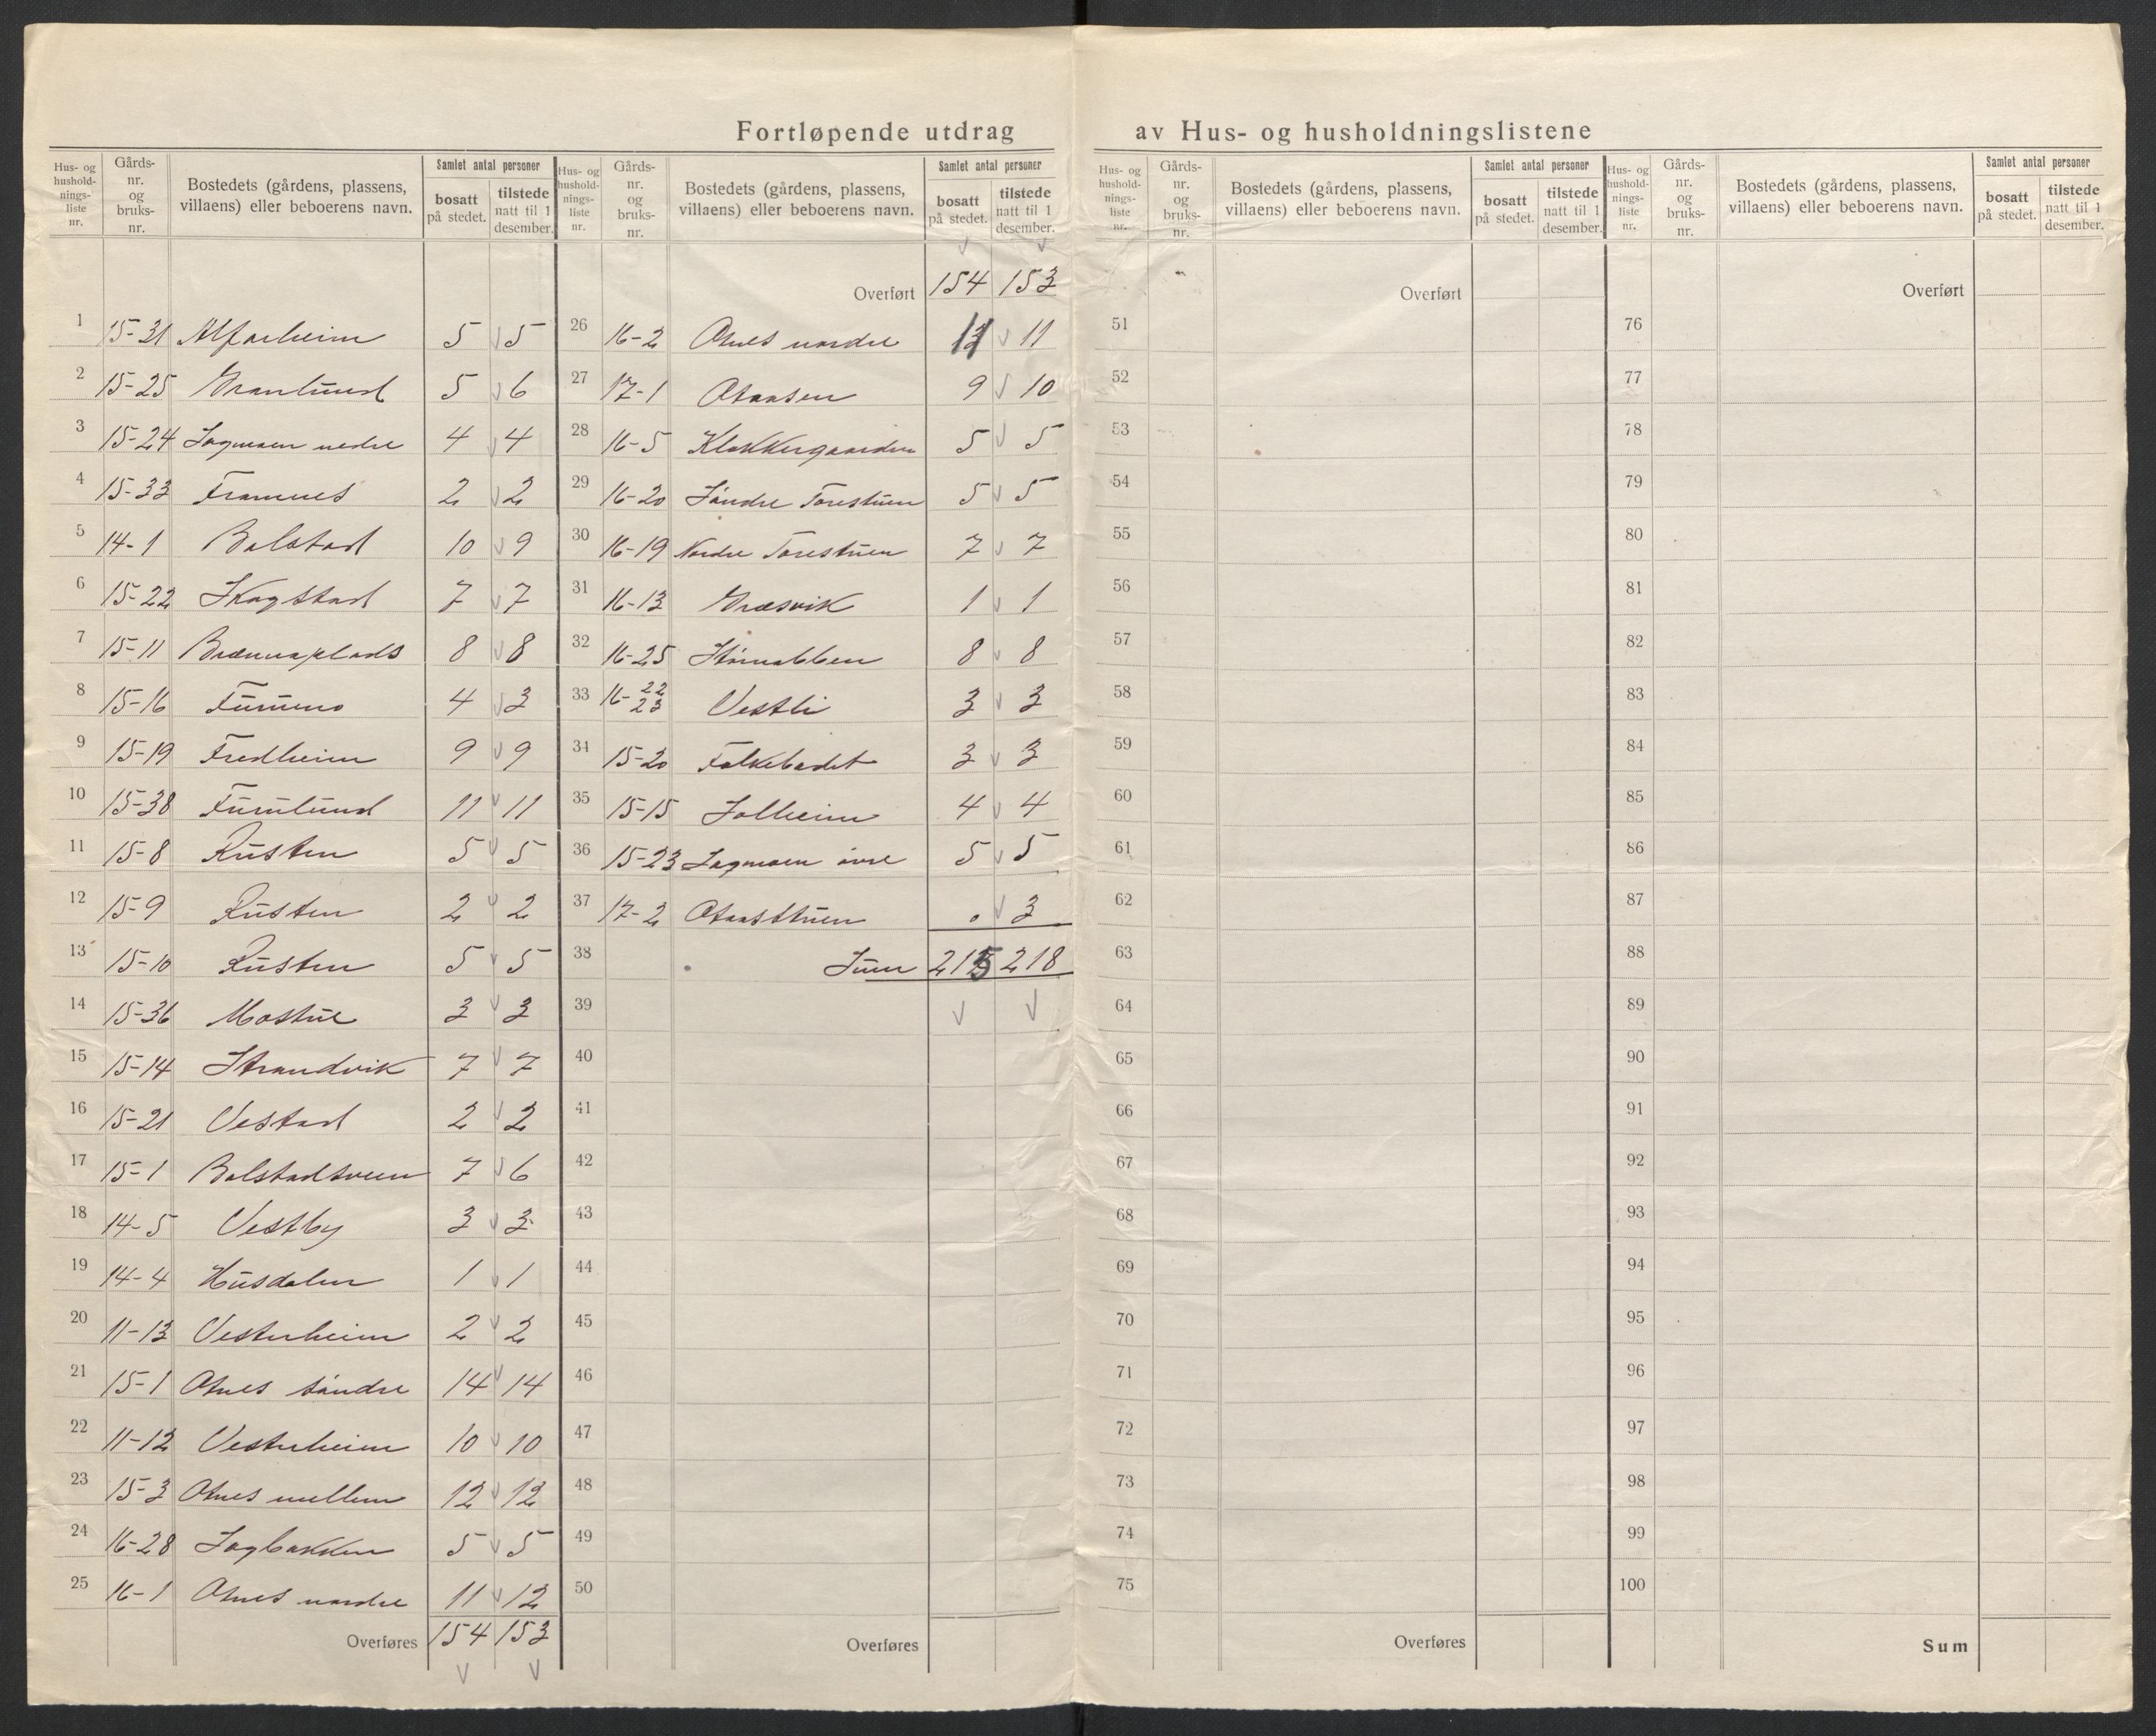 Fortløpende utdrag av Hus- og husholdningslistene
Hus- og hushold-nings-liste nr. | Gårds-nr. og bruks-nr. | Bostedets (gårdens, plassens, villaens) eller beboerens navn. | Samlet antal personer | bosatt på stedet. | tilstede natt til 1 desember.
1 15-31 Alfarheim 5 5
2 15-25 Granlund 5 6
3 15-24 Sagmoen nedre 4 4
4 15-33 Framnes 2 2
5 14-1 Bolstad 10 9
6 15-22 Skogstad 7 7
7 15-11 Brænnaplads 8 8
8 15-16 Furumo 4 3
9 15-19 Fredheim 9 9
10 15-38 Furulund 11 11
11 15-8 Rusten 5 5
12 15-9 Rusten 2 2
13 15-10 Rusten 5 5
14 15-36 Mostue 3 3
15 15-14 Strandvik 7 7
16 15-21 Vestad 2 2
17 15-1 Bolstadsveen 7 6
18 14-5 Vestby 3 3
19 14-4 Husdalen 1 1
20 11-13 Vesterheim 2 2
21 15-1 Otnes søndre 14 14
22 11-12 Vesterheim 10 10
23 15-3 Otnes mellem 12 12
24 16-28 Sagbakken 5 5
25 16-1 Otnes nordre 11 12
Overføres 154 153
Hus- og hushold-nings-liste nr. | Gårds-nr. og bruks-nr. | Bostedets (gårdens, plassens, villaens) eller beboerens navn. | Samlet antal personer | bosatt på stedet. | tilstede natt til 1 desember.
Overført 154 153
26 16-2 Otnes nordre 11 11
27 17-1 Otaasen 9 10
28 16-5 Klokkergaarden 5 5
29 16-20 Søndre Torestuen 5 5
30 16-19 Nordre Torestuen 7 7
31 16-13 Græsvik 1 1
32 16-25 8 8
33 16-22 23 Vestli 3 3
34 15-20 Folkebadet 3 3
35 15-15 Solheim 4 4
36 15-23 Sagmoen øvre 5 5
37 17-2 Otaasstuen . 3
38 Sum 215 218
39
40
41
42
43
44
45
46
47
48
49
50
Overføres
Hus- og hushold-nings-liste nr. | Gårds-nr. og bruks-nr. | Bostedets (gårdens, plassens, villaens) eller beboerens navn. | Samlet antal personer | bosatt på stedet. | tilstede natt til 1 desember.
Overført
51
52
53
54
55
56
57
58
59
60
61
62
63
64
65
66
67
68
69
70
71
72
73
74
75
Overføres
Hus- og hushold-nings-liste nr. | Gårds-nr. og bruks-nr. | Bostedets (gårdens, plassens, villaens) eller beboerens navn. | Samlet antal personer | bosatt på stedet. | tilstede natt til 1 desember.
Overført
76
77
78
79
80
81
82
83
84
85
86
87
88
89
90
91
92
93
94
95
96
97
98
99
100
Sum